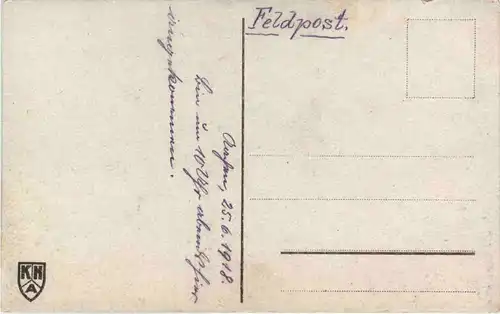 Feldpost.
25.6.1918.
bin um 10 Uhr abends hier
eingekommen.
K H
A